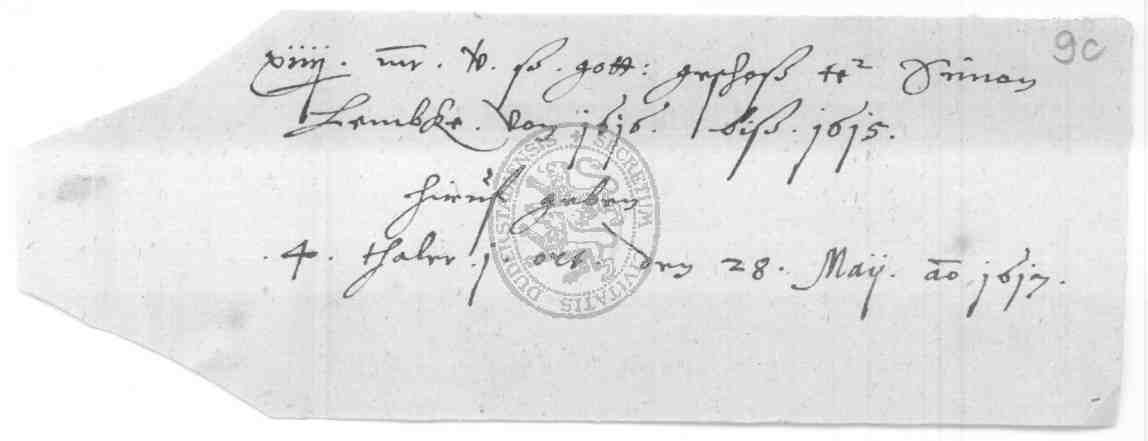 9c
xiiij. mr. v. ß. gott: geschoß tt Simon
Lembke. von 1616. biß. 1615.
hieruf geben
4. thaler. j. ort. den 28. Maij. ao 1617.
SECRETUM CIVITATIS DUDERSTADENSIS